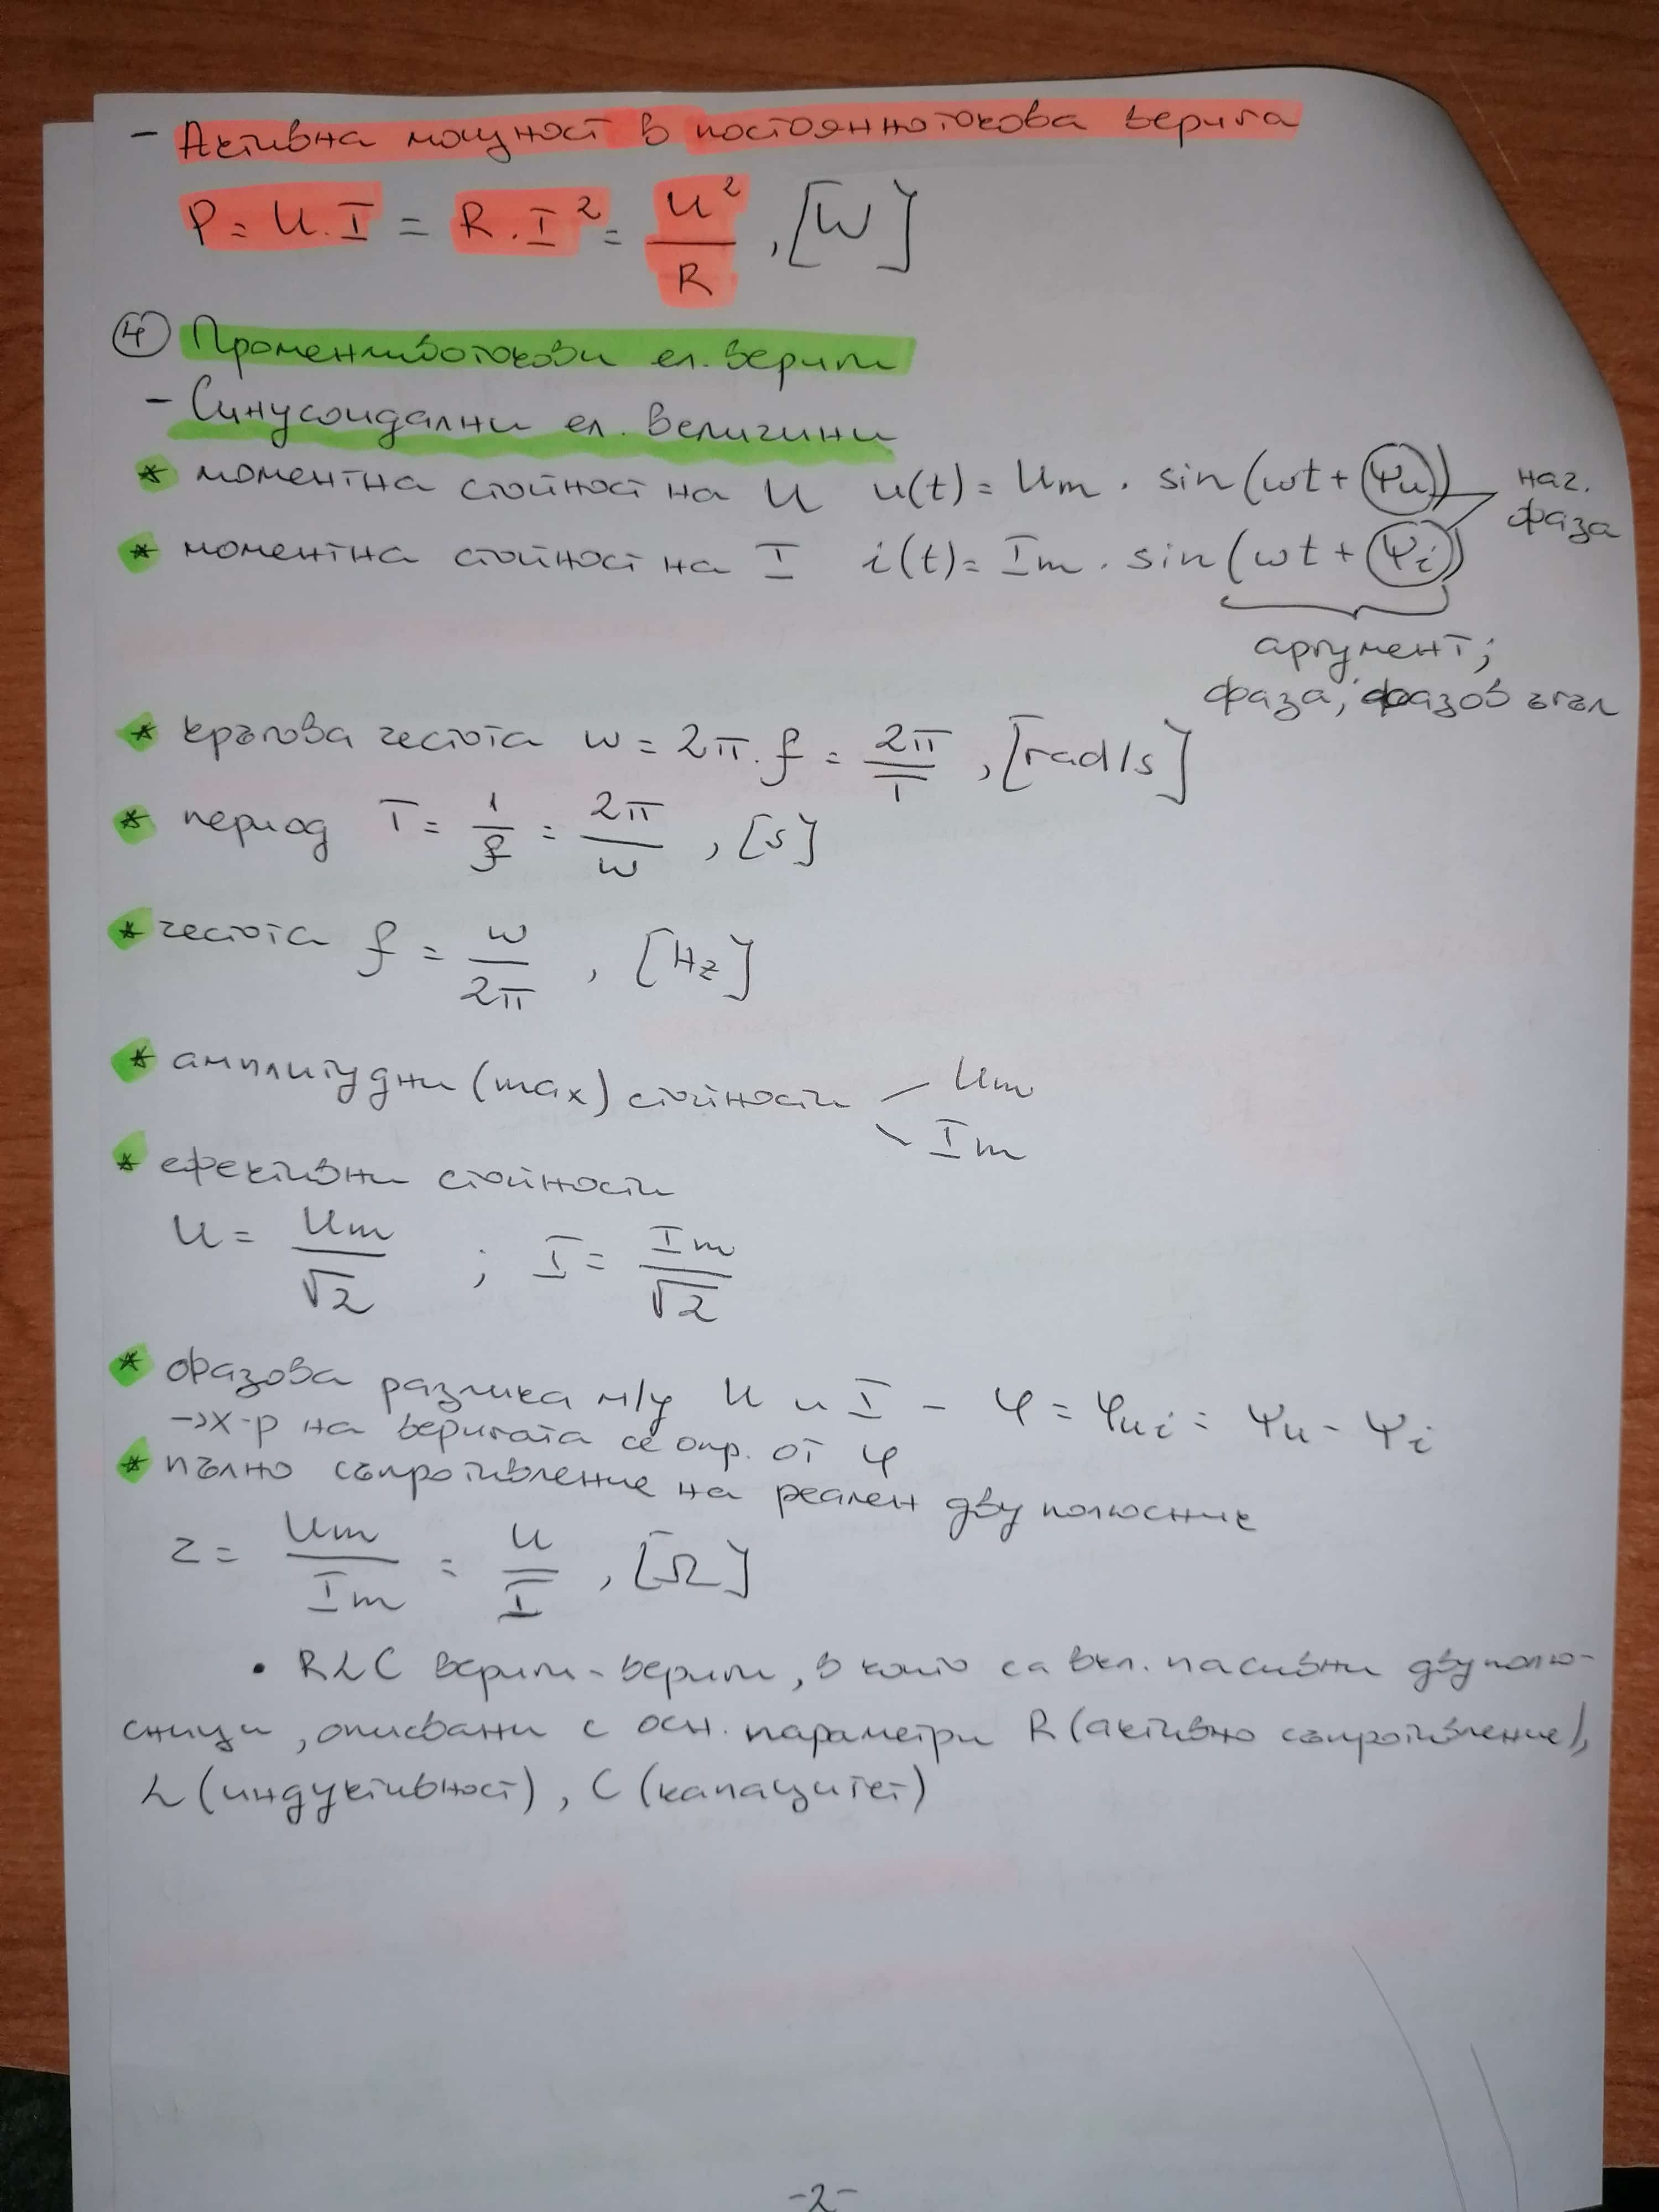 - Активна мощност в постояннотокова верига
P = U.I = R.I² = U²/R , [W]
④ Променливотокови ел. вериги
- Синусоидални ел. величини
* моментна стойност на U u(t) = Um . sin(ωt + ψu) нач. фаза
* моментна стойност на I i(t) = Im . sin(ωt + ψi)
аргумент;
фаза; фазов ъгъл
* кръгова честота ω = 2π.f = 2π/T , [rad/s]
* период T = 1/f = 2π/ω , [s]
* честота f = ω/2π , [Hz]
* амплитудни (max) стойности Um
Im
* ефективни стойности
U = Um/√2 ; I = Im/√2
* фазова разлика м/у U и I - φ = φui = ψu - ψi
→ х-р на веригата се опр. от φ
* пълно съпротивление на реален двуполюсник
z = Um/Im = U/I , [Ω]
• RLC вериги - вериги, в които са вкл. пасивни двуполю-
сници, описвани с осн. параметри R (активно съпротивление),
L (индуктивност), C (капацитет)
-2-